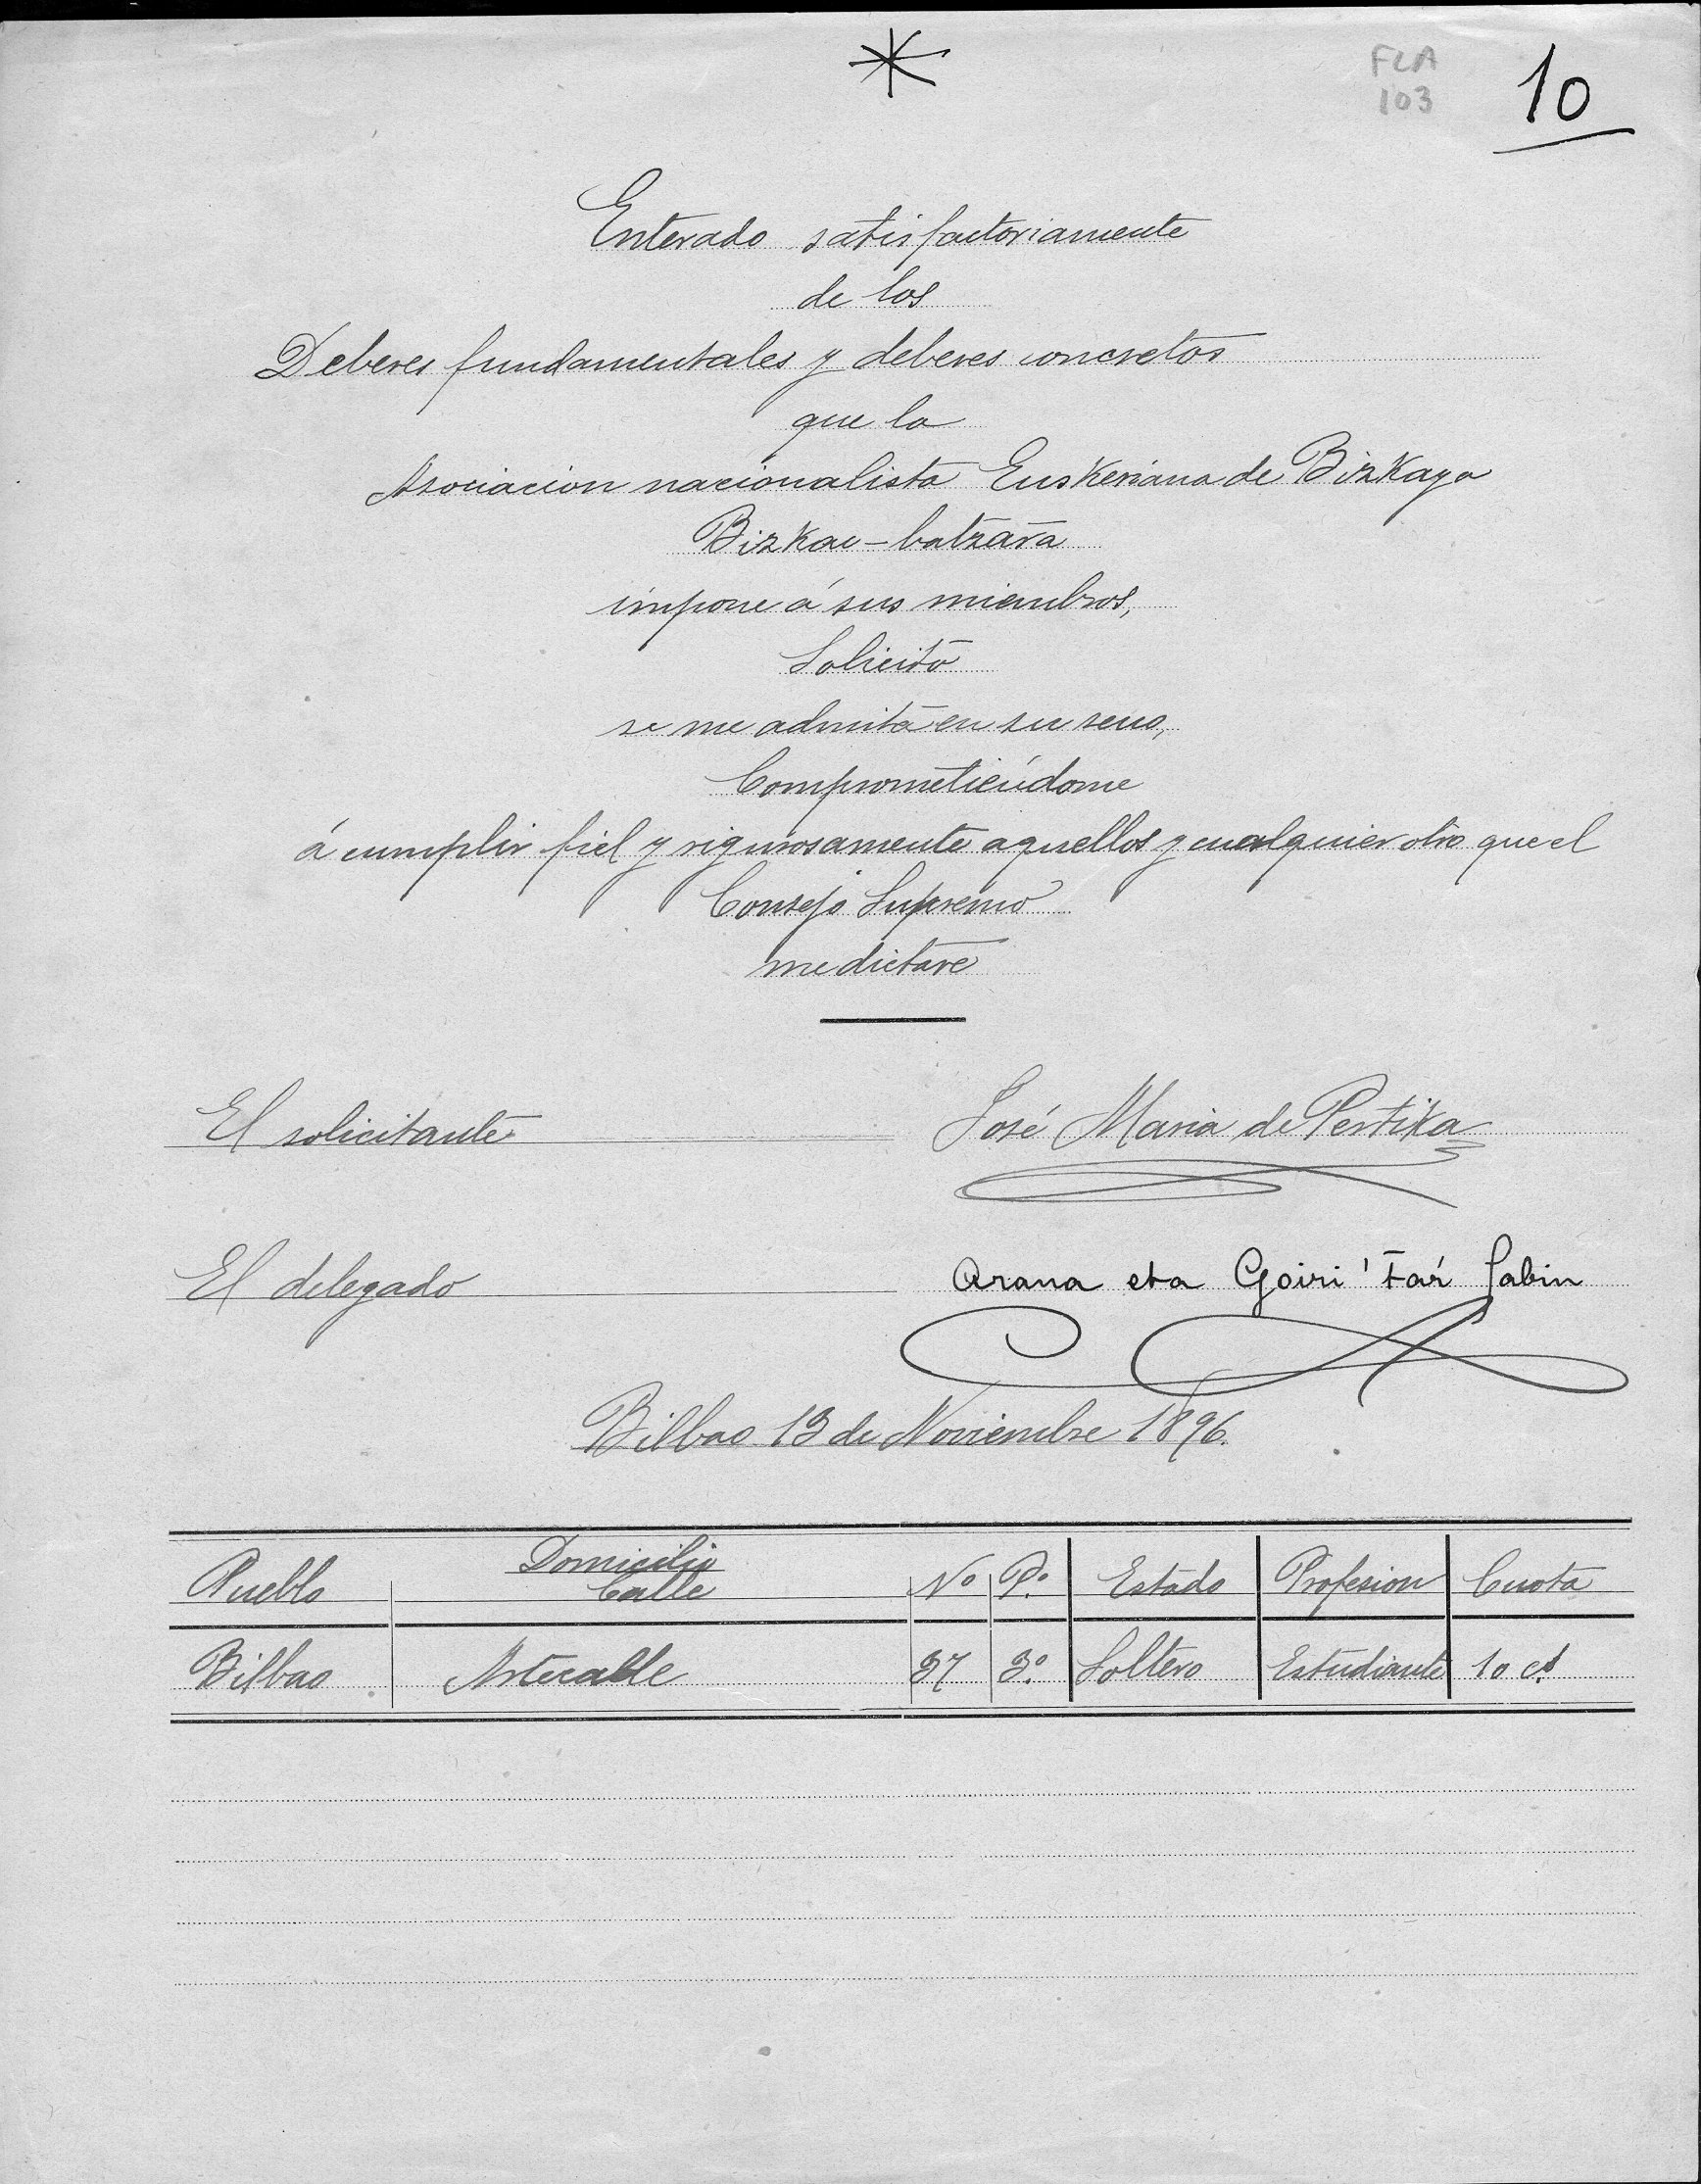 FLA
103
10
Enterado satisfactoriamente
de los
Deberes fundamentales y deberes concretos
que la
Asociacion nacionalista Euskeriana de Bizkaya
Bizkai-batzar̄a
impone á sus miembros,
Solicito
se me admita en su seno,
Comprometiéndome
á cumplir fiel y rigurosamente aquellos y cualquier otro que el
Consejo Supremo
me dictare
El solicitante José Maria de Pertika
El delegado Arana eta Goiri 'tar̄ Sabin
Bilbao 13 de Noviembre 1896.
Domicilio
Pueblo Calle Nº P.º Estado Profesion Cuota
Bilbao Artecalle 37 3.º Soltero Estudiante 10 cs.